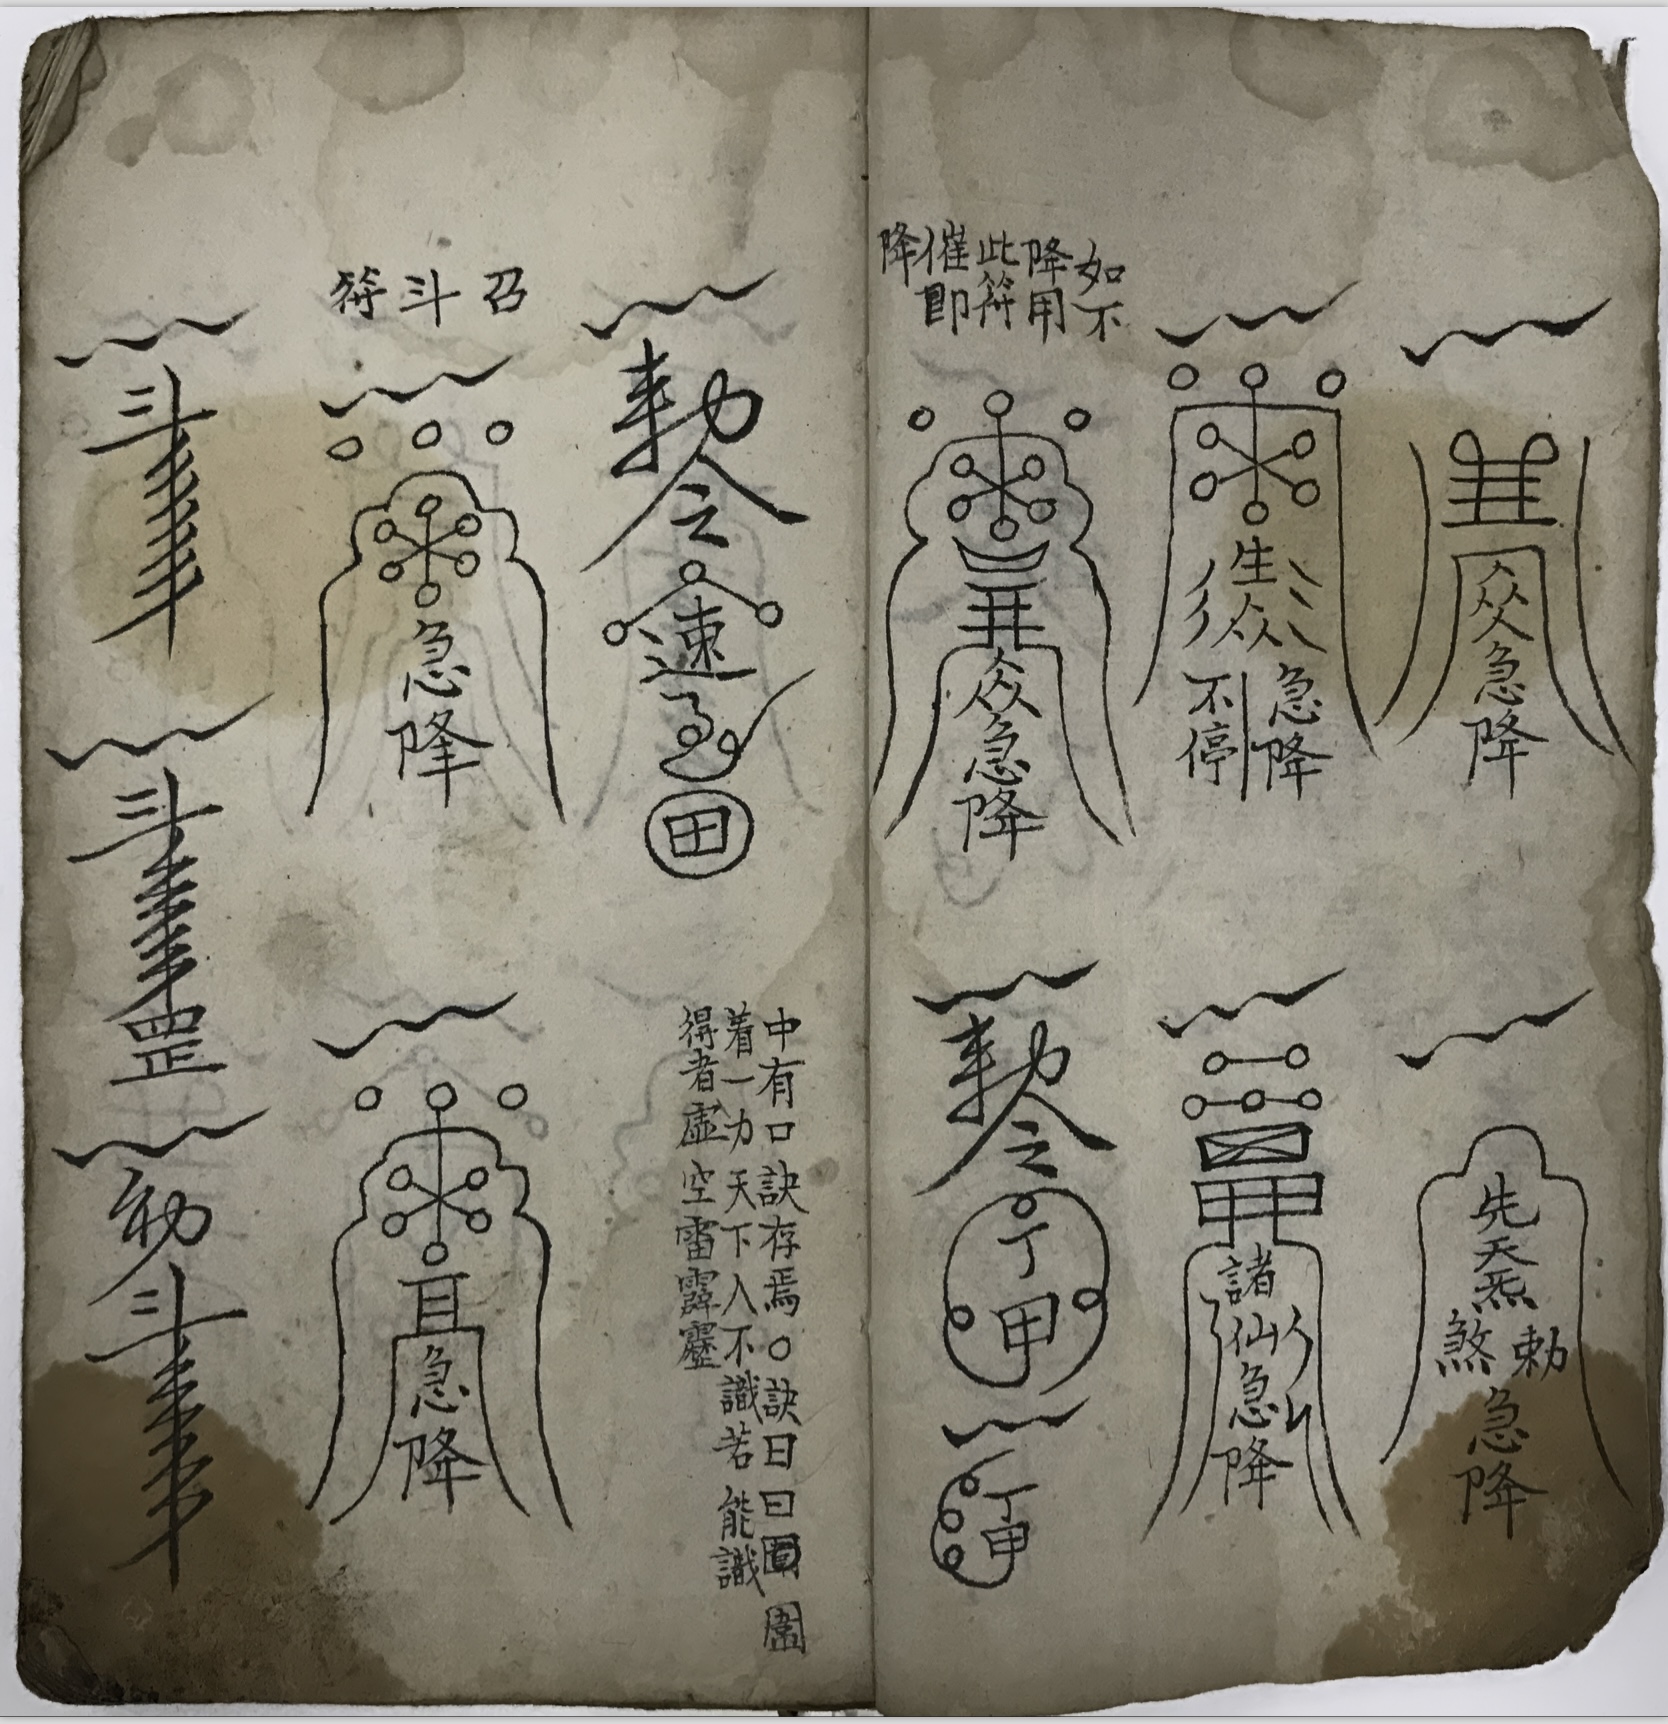 众急降
先天炁
煞勅
急降
生众
急降
不停
諸仙急降
如不
降用
此符
催即
降
众急降
勅令
丁甲
丁甲
勅令
速
田
中有口訣存焉○訣曰曰
着一力天下人不識若能識
得者虚空雷霹靂
召斗符
急降
急降
斗
斗
罡
勅
斗